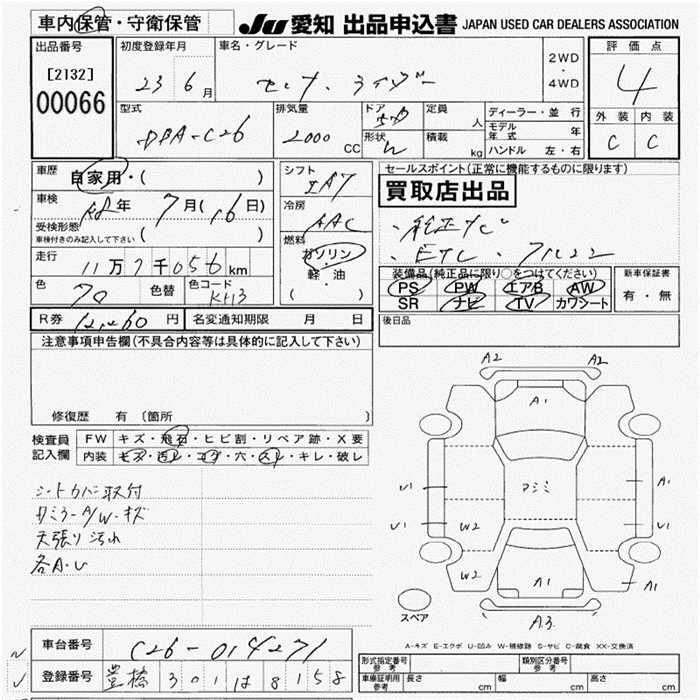 車内保管・守衛保管
JU 愛知 出品申込書 JAPAN USED CAR DEALERS ASSOCIATION
出品番号
[2132]
00066
初度登録年月
23 6 月
車名・グレード
セレナ・ライダー
2WD
・
4WD
評価点
4
外装 内装
C C
型式
DBA-C26
排気量
2000 CC
ドア
形状
定員 人
積載 kg
ディーラー・並行
モデル年式 年
ハンドル 左・右
車歴
自家用・( )
車検
年 7月(16日)
受検形態
車検付きのみ記入して下さい ( )
走行
11万7千056km
色
色替
色コード
KH3
シフト
IAT
冷房
AAC
燃料
ガソリン
・
軽・油
( )
セールスポイント(正常に機能するものに限ります)
買取店出品
・純正ナビ
・ETC ・アルミ
装備品(純正品に限り○をつけてください)
PS PW エアB AW
SR ナビ TV カワシート
新車保証書
有・無
R券 12,260 円
名変通知期限 月 日
後日品
注意事項申告欄(不具合内容等は具体的に記入して下さい)
修復歴 有 〔箇所
検査員
記入欄
FW キズ・飛石・ヒビ割・リペア跡・X要
内装 キズ・汚レ・コゲ・穴・スレ・キレ・破レ
シートカバー取付
ミラー A/W・キズ
天張り汚れ
各A・U
A2 A2
A1
U1 A1
アミミ
U1 W2 U1
W2 A1 A1
A3
スペア
A-キズ E-エクボ U-凹み W-補修跡 S-サビ C-腐食 XX-交換済
車台番号
C26-014271
登録番号
豊橋 301 は 8158
型式指定番号
参考
類別区分番号
参考
車庫証明用
参考
長さ cm 幅 cm 高さ cm